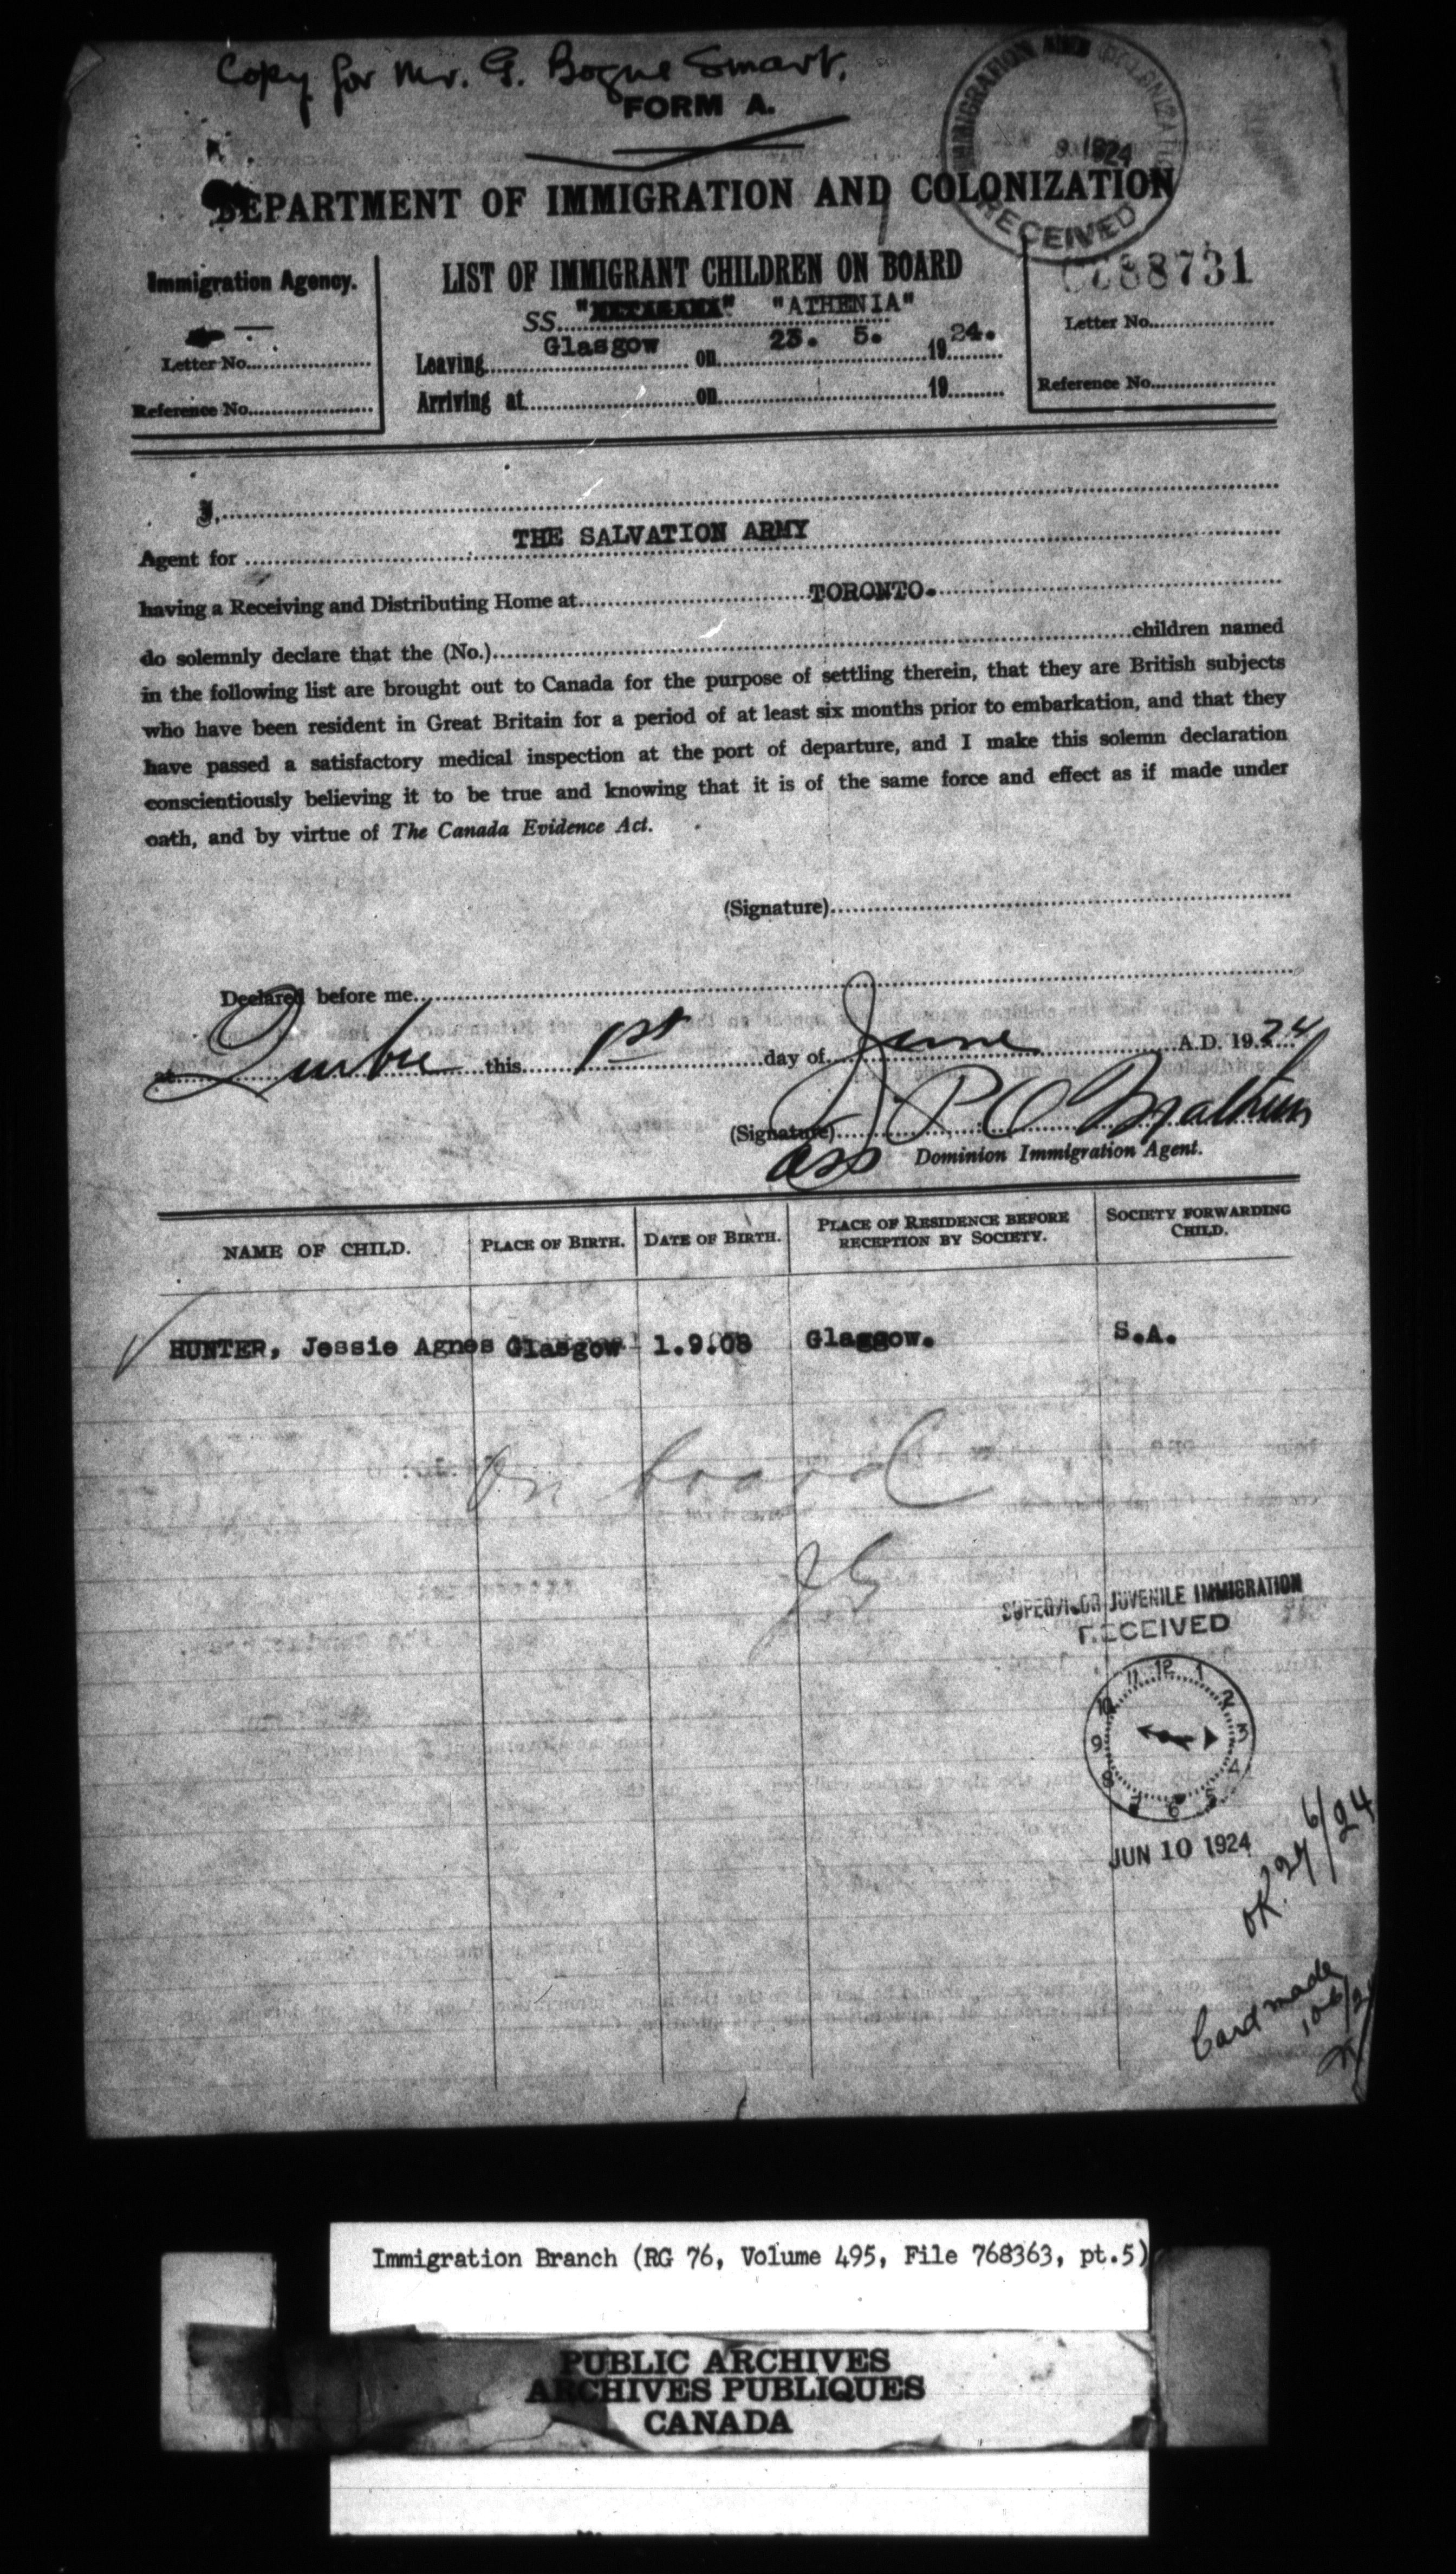 Copy for Mr. G. Bogue Smart.
FORM A.
IMMIGRATION AND COLONIZATION
9 1924
RECEIVED
DEPARTMENT OF IMMIGRATION AND COLONIZATION
Immigration Agency.
Letter No.
Reference No.
LIST OF IMMIGRANT CHILDREN ON BOARD
SS. "ATHENIA"
Leaving Glasgow on 23. 5. 1924.
Arriving at on 19
88731
Letter No.
Reference No.
I,
Agent for THE SALVATION ARMY
having a Receiving and Distributing Home at TORONTO.
do solemnly declare that the (No.) children named
in the following list are brought out to Canada for the purpose of settling therein, that they are British subjects
who have been resident in Great Britain for a period of at least six months prior to embarkation, and that they
have passed a satisfactory medical inspection at the port of departure, and I make this solemn declaration
conscientiously believing it to be true and knowing that it is of the same force and effect as if made under
oath, and by virtue of The Canada Evidence Act.
(Signature)
Declared before me
at Quebec this 1st day of June A.D. 1924
(Signature)
Ass Dominion Immigration Agent.
NAME OF CHILD. PLACE OF BIRTH. DATE OF BIRTH. PLACE OF RESIDENCE BEFORE RECEPTION BY SOCIETY. SOCIETY FORWARDING CHILD.
HUNTER, Jessie Agnes Glasgow 1.9.08 Glasgow. S.A.
On board
SUPERVISOR JUVENILE IMMIGRATION
RECEIVED
12 1 2 3 4 5 6 7 8 9 10 11
JUN 10 1924
OK. 27/6/24
Card made
Immigration Branch (RG 76, Volume 495, File 768363, pt.5)
PUBLIC ARCHIVES
ARCHIVES PUBLIQUES
CANADA